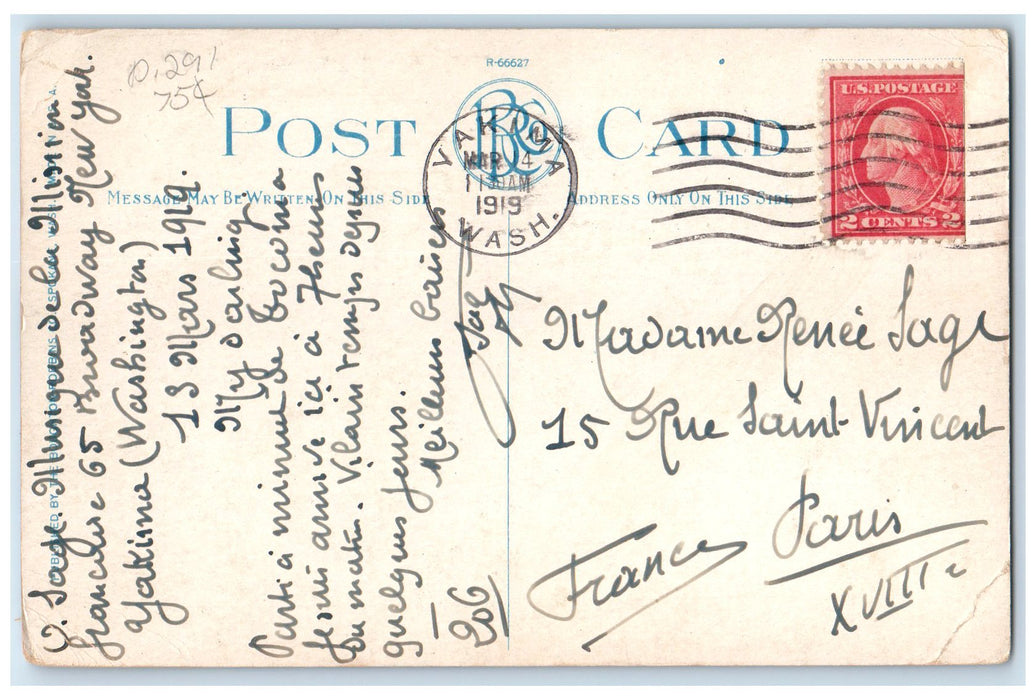 p.291
75¢
R-66627
POST CARD
MESSAGE MAY BE WRITTEN ON THIS SIDE
ADDRESS ONLY ON THIS SIDE
YAKIMA
MAR 14
11 AM
1919
WASH.
U.S. POSTAGE
2 CENTS 2
Sage. Musique de la Mission
française 65 Broadway New York.
Yakima (Washington)
13 Mars 1919.
My darling
Parti à minuit de Tocoma
je suis arrivé ici à 7 heures
du matin. Vilain temps depuis
quelques jours.
Meilleurs baisers
206
Madame Renée Sage
15 Rue Saint-Vincent
Paris
XVIIIe
France